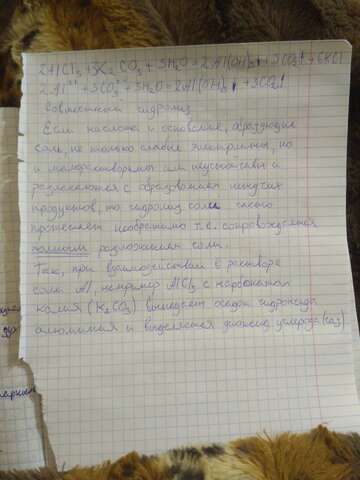 2AlCl3 + K2CO3 + 3H2O = 2Al(OH)3↓ + 3CO2↑ + 6KCl
2Al+++ + 3CO3-- + 3H2O = 2Al(OH)3↓ + 3CO2↑
Совместный гидролиз
Если кислота и основание, образующие
соль, не только слабые электролиты, но
и малорастворимы или неустойчивы и
разлагаются с образованием летучих
продуктов, то гидролиз соли часто
протекает необратимо т.е. сопровождается
полным разложением соли.
Так, при взаимодействии в растворе
соли Al, например AlCl3 с карбонатом
калия (K2CO3) выпадает осадок гидроксида
алюминия и выделяется диоксид углерода (CO2)